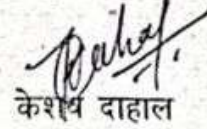 केशव दाहाल